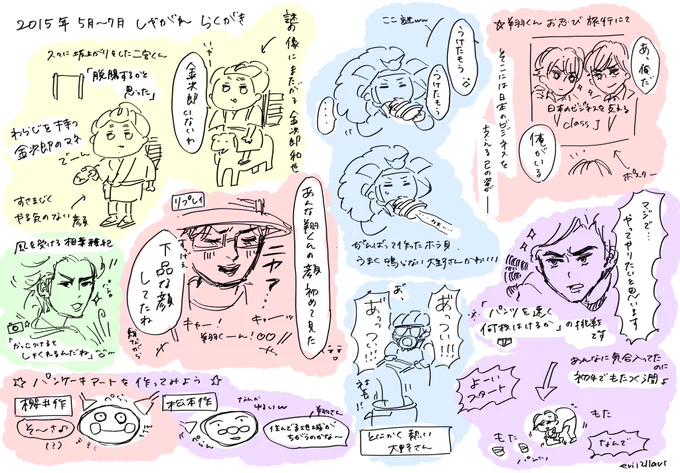 2015年 5月〜7月 しやがれ らくがき
久々に坂上がりをした二宮くん
「脱腸するかと
思った」
謎の像にまたがる金次郎和也
金次郎
いないわ
わらじを持つ
金次郎のマネ
でーん
すさまじく
やる気のない顔
ここ謎ww
うけたもう
うけたもう
がんばって作ったホラ貝
うまく鳴らない大野さんかわいい
☆翔くんお忍び旅行にて
あ、俺だ
俺がいる
そこには日本のビジネスを
支える己の姿が
日本のビジネスを支える
「class」
ポスター
風を受ける相葉雅紀
「かっこつけると
しゃくれるんだね」
リプレイ
あんな翔くんの顔初めて見た
ニヤァ
下品な顔
してたね
キャー!
キャーッ
翔くーん!
あ、
あっつい!!!
あっつい!!!
とにかく熱い
大野さん
マジで…
やってやりたいと思います
「パンツを速く
何枚はけるか」の挑戦
です
あんなに気合入ってた
のに
初手でもたつく潤
よーい
スタート
もた
もた
なんで
☆ パンケーキアートを作ってみよう ☆
櫻井作
松本作
なんか
ゆるいw
翔さん
住んでる地域が
ちがうのかな〜